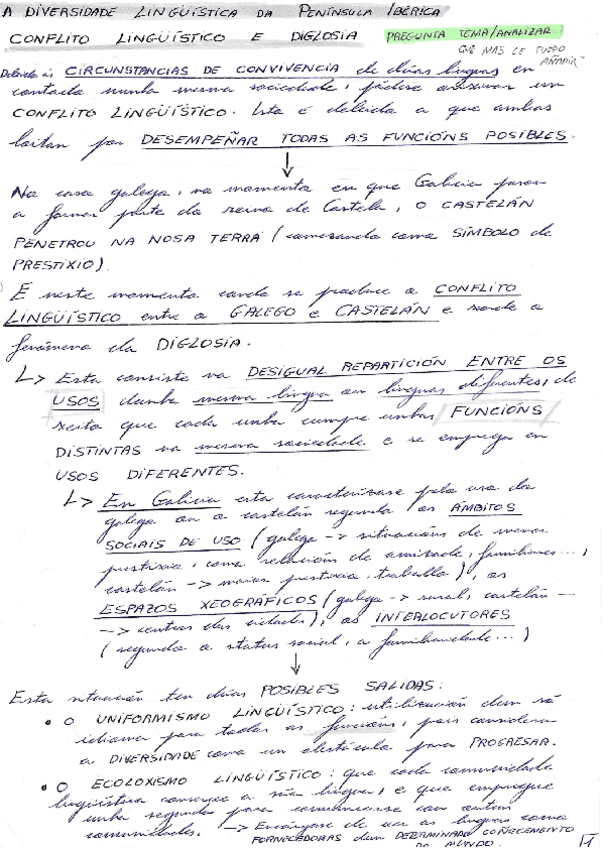 A DIVERSIDADE LINGÜÍSTICA DA PENÍNSULA IBÉRICA
CONFLITO LINGÜÍSTICO E DIGLOSIA PREGUNTA TEMA/ANALIZAR
QUE MAS LE PUEDO AÑADIR
Debido ás CIRCUNSTANCIAS DE CONVIVENCIA de dúas linguas en
contacto nunha mesma sociedade, pódese orixinar un
CONFLITO LINGÜÍSTICO. Isto é debido a que ambas
loitan por DESEMPEÑAR TODAS AS FUNCIÓNS POSIBLES.
↓
No caso galego, no momento en que Galicia pasou
a formar parte do reino de Castela, O CASTELÁN
PENETROU NA NOSA TERRA (comezando como SÍMBOLO de
PRESTIXIO).
E neste momento cando se produce o CONFLITO
LINGÜÍSTICO entre o GALEGO e CASTELÁN e xorde o
fenómeno da DIGLOSIA.
↳ Esta consiste na DESIGUAL REPARTICIÓN ENTRE OS
USOS dunha mesma lingua ou linguas diferentes, de
xeito que cada unha cumpre unhas FUNCIÓNS
DISTINTAS na mesma sociedade e se emprega en
USOS DIFERENTES.
↳ En Galicia esta caracterízase polo uso do
galego ou o castelán segundo os ÁMBITOS
SOCIAIS DE USO (galego -> situacións de menos
prestixio, como relacións de amizade, familiares...,
castelán -> maior prestixio, traballo), os
ESPAZOS XEOGRÁFICOS (galego -> rural, castelán --
--> centros das cidades), os INTERLOCUTORES
(segundo o status social, a familiaridade...)
↓
Esta situación ten dúas POSIBLES SALIDAS:
• O UNIFORMISMO LINGÜÍSTICO: utilización dun só
idioma para todas as funcións, pois considera
a DIVERSIDADE como un obstáculo para PROGRESAR.
• O ECOLOXISMO LINGÜÍSTICO: que cada comunidade
lingüística conserve a súa lingua, e que empregue
unha segunda para comunicarse con outras
comunidades. -> de ver as linguas como
FORNECEDORAS dun DETERMINADO COÑECEMENTO
DO MUNDO.
1